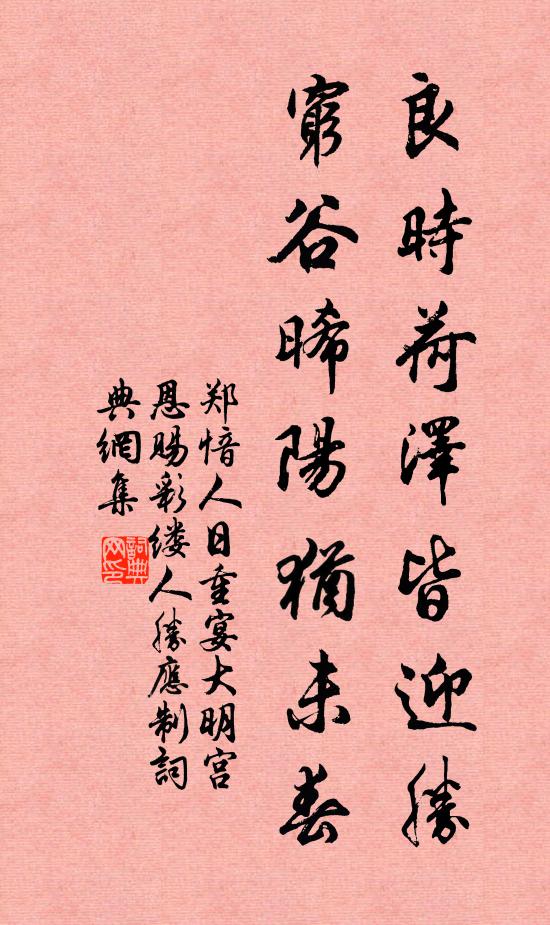 良時荷澤皆迎勝
窮谷晞陽猶未春
郑愔人日重宴大明宫
恩賜彩缕人勝應制詞
典網集
詞典
网印